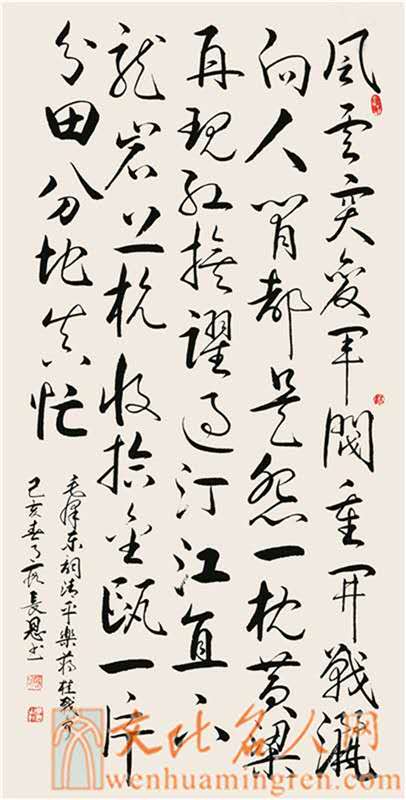 風雲突變軍閥重開戰灑
向人間都是怨一枕黄粱
再現紅旗躍過汀江直下
龍岩上杭收拾金甌一片
分田分地真忙
毛澤東詞清平樂蔣桂戰爭
己亥春月長恩书
文化名人网
wenhuamingren.com